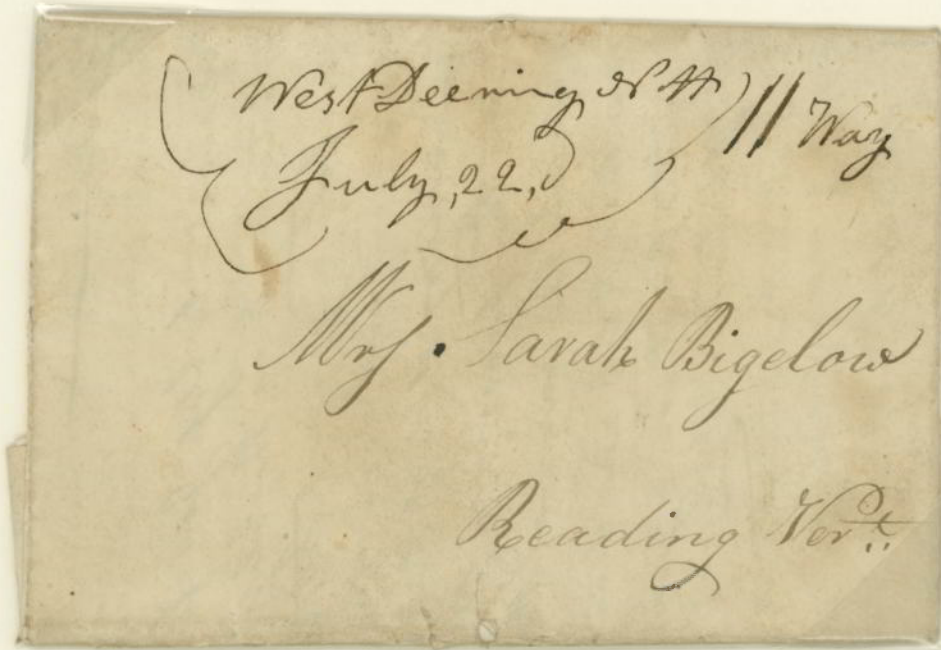 West Deering N H 11 Way
July, 22,
Mrs. Sarah Bigelow
Reading Vert.